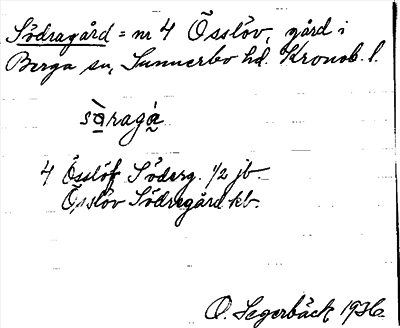 Södragård = nr 4 Össlöv, gård i
Berga sn, Sunnerbo hd. Kronob. l.
sò̱ragá̰
4 Össlöf Söderg. 1/2 jb.
Össlöv Södregård kb.
O. Segerbäck 1936.